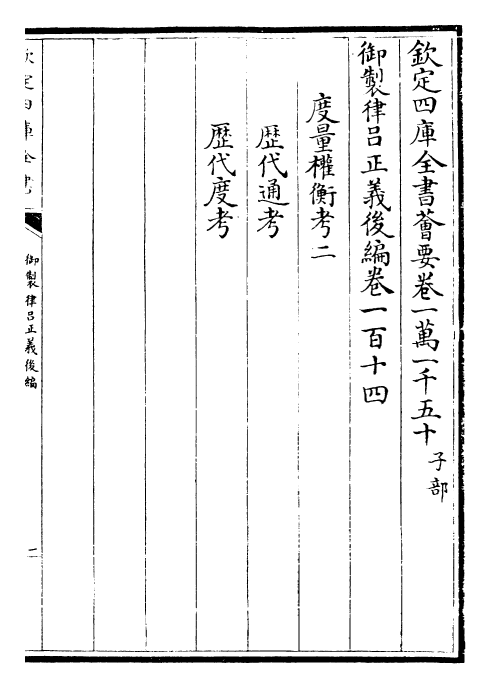 欽定四庫全書薈要卷一萬一千五十 子部
御製律吕正義後編卷一百十四
度量權衡考二
歴代通考
歴代度考
欽定四庫全書
御製律吕正義後編